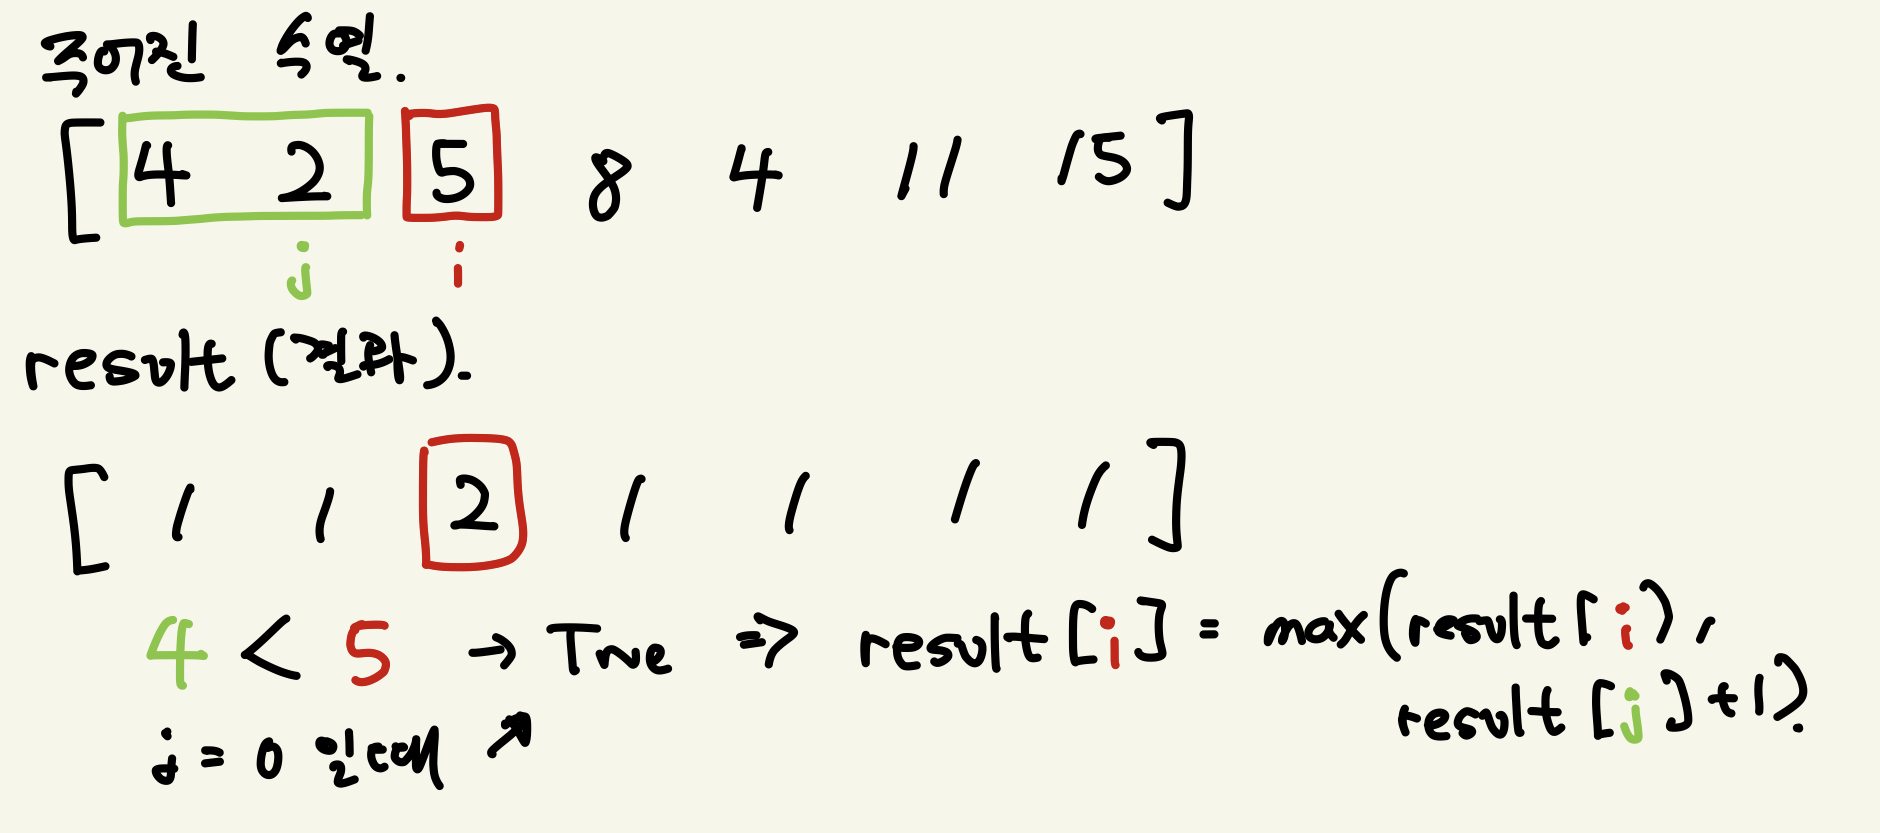 주어진 수열.
[ 4 2 5 8 4 11 15 ]
j i
result (결과).
[ 1 1 2 1 1 1 1 ]
4 < 5 → True => result[i] = max(result[i),
result [j] +1).
j = 0 일때 ↗